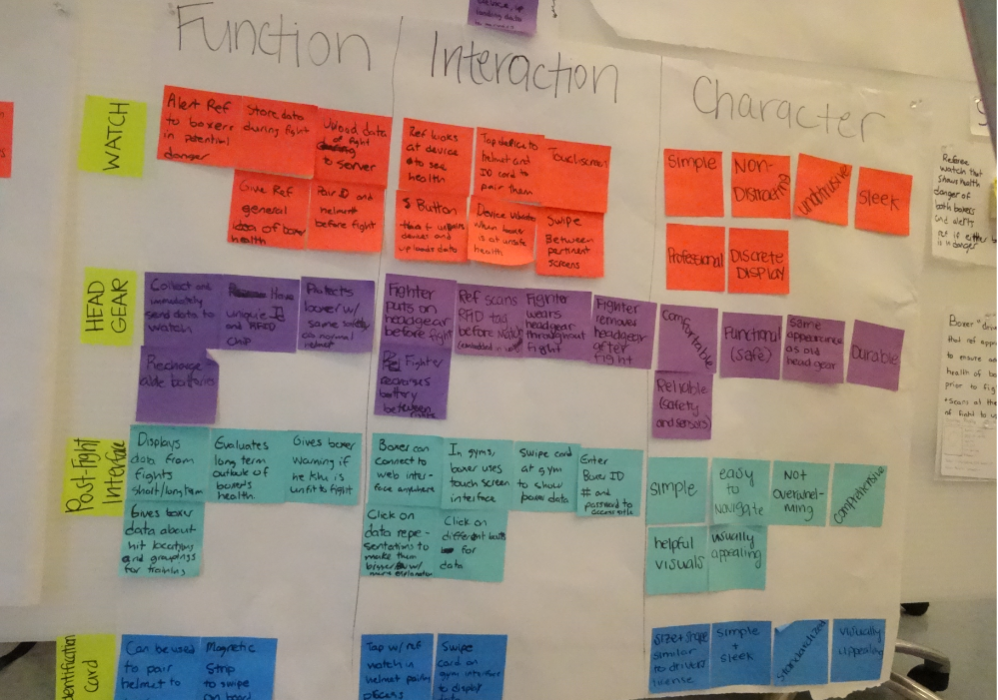 Function
Interaction
Character
WATCH
Alert Ref
to boxers
in potential
danger
Store data
during fight
Upload data
of fight
to server
Give Ref
general
idea of boxer
health
Pair ID and
helmet
before fight
Ref looks
at device
to see
health
Tap device to
helmet and
ID card to
pair them
Touchscreen
Button
device and
uploads data
Device
when boxer
is at unsafe
health
Swipe
Between
pertinent
screens
Simple
Non-
unobtrusive
Sleek
Professional
Discrete
DISPLAY
HEAD
GEAR
Collect and
immediately
send data to
watch
Have
unique ID
and RFID
chip
Protects
boxer w/
same safety
as normal
helmet
Rechargeable
batteries
Fighter
puts on
headgear
before fight
Ref scans
RFID tag
before
Fighter
wears
headgear
throughout
fight
Fighter
removes
headgear
after
fight
Fighter
recharges
battery
between
Comfortable
Functional
(safe)
Same
appearance
as old
head gear
Durable
Reliable
(safety
and sensors)
Post-fight
Interface
Displays
data from
fights
short/long term
Evaluates
long term
outlook of
boxer's
health
Gives boxer
warning if
he/she is
unfit to fight
Gives boxer
data about
hit locations
and groupings
for training
Boxer can
connect to
web inter-
face anywhere
In gyms,
boxer uses
touch screen
interface
Swipe card
at gym
to show
boxer data
Enter
Boxer ID
# and
password to
Click on
data repre-
sentations to
make them
bigger w/
more explanation
Click on
different
for
data
simple
easy
to
navigate
Not
overwhel-
ming
comprehensive
helpful
visuals
visually
appealing
Identification
Card
Can be used
to pair
helmet to
Magnetic
Strip
to swipe
on board
Tap w/ ref
watch in
helmet pairing
process
Swipe
card on
gym interface
to display
data
size + shape
similar
to drivers
license
simple
+
sleek
standardized
visually
appealing
Referee
watch that
shows health
danger of
both boxers
and alerts
ref if either
is in danger
Boxer
that ref
to ensure
health of
prior to